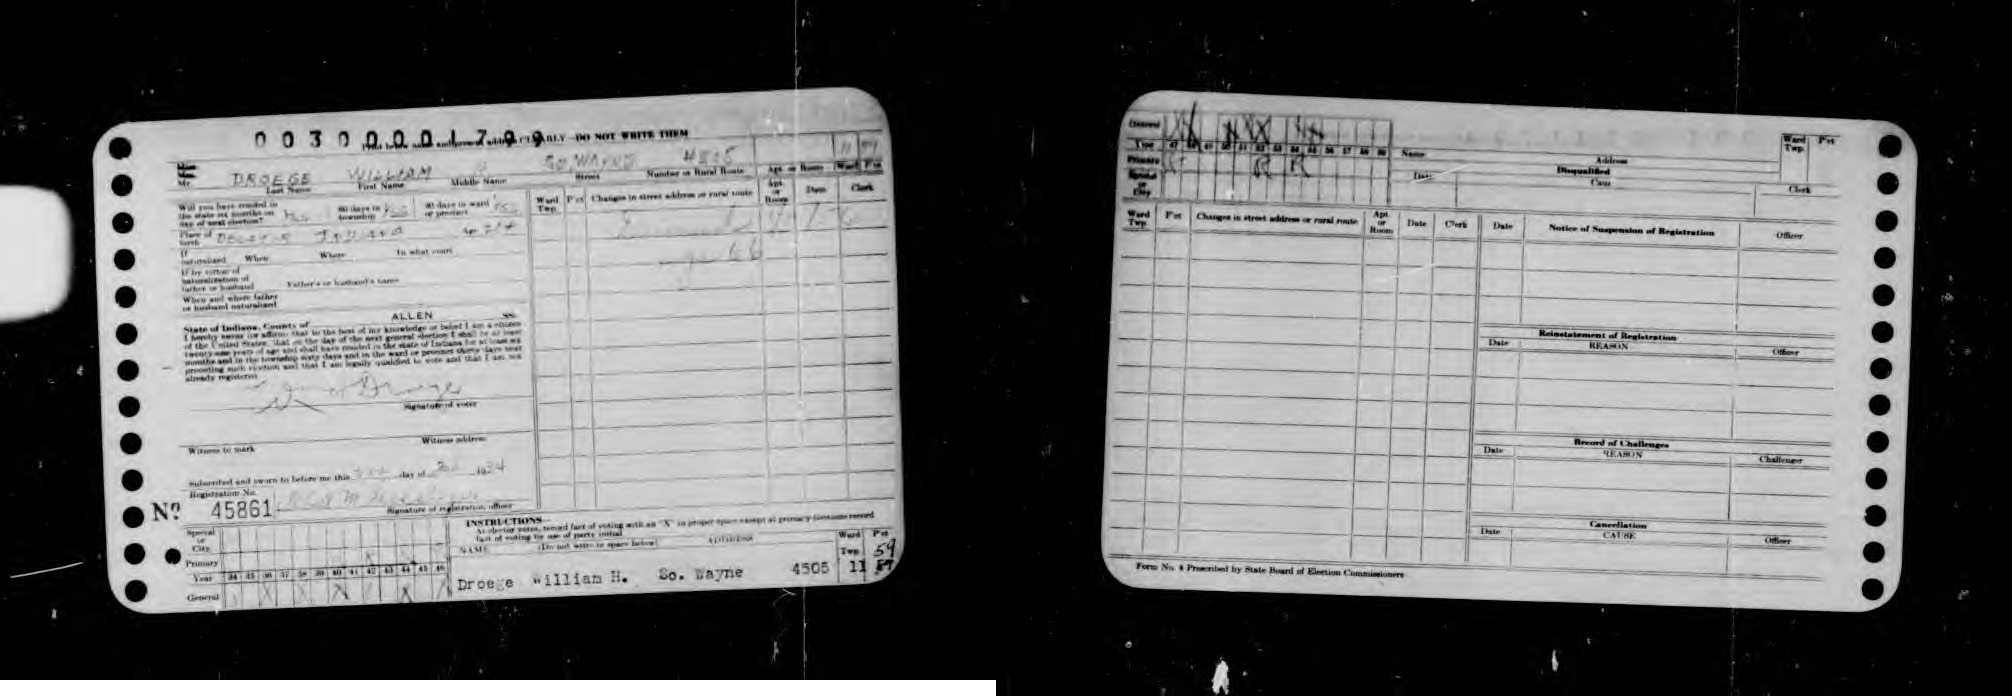 0 0 3 0 0 0 0 1 7 9 9
DO NOT WRITE THEM
Miss
Mrs.
Mr. DROEGE WILLIAM SO. WAYNE 11 59
Last Name First Name Middle Name Street Number or Rural Route Apt. or Room Ward P'ct
Will you have resided in the state six months on day of next election? Yes 60 days in township Yes 30 days in ward or precinct Yes
Place of birth DECATUR INDIANA Age
If naturalized When Where In what court
If by virtue of naturalization of father or husband Father's or husband's name
When and where father or husband naturalized
State of Indiana, County of ALLEN SS.
I hereby swear or affirm that to the best of my knowledge or belief I am a citizen
of the United States, that on the day of the next general election I shall be at least
twenty-one years of age and shall have resided in the state of Indiana for at least six
months and in the township sixty days and in the ward or precinct thirty days next
preceding such election and that I am legally qualified to vote and that I am not
already registered
Wm Droege
Signature of voter
Witness to mark Witness address
Subscribed and sworn to before me this day of 1934
Registration No.
Nº 45861
Signature of registration officer
Ward Twp. P'ct Changes in street address or rural route Apt. or Room Date Clerk
age 66
Special or City
Primary
Year 34 35 36 37 38 39 40 41 42 43 44 45 46
General X X X X X
INSTRUCTIONS
As elector votes, record fact of voting with an "X" in proper space except at primary elections record
fact of voting by use of party initial
NAME (Do not write in space below) ADDRESS Ward Twp P'ct
59
Droege William H. So. Wayne 4505 11 57
General X X X X X
Year 47 48 49 50 51 52 53 54 55 56 57 58 59 60
Primary R R R
Special or City
Name Address Ward Twp. P'ct
Disqualified
Date Cause Clerk
Ward Twp. P'ct Changes in street address or rural route Apt. or Room Date Clerk
Date Notice of Suspension of Registration Officer
Reinstatement of Registration
Date REASON Officer
Record of Challenges
Date REASON Challenger
Cancellation
Date CAUSE Officer
Form No. 4 Prescribed by State Board of Election Commissioners